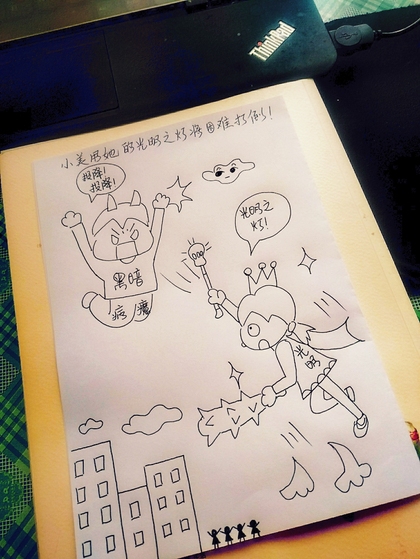 ThinkPad
小美用她的光明之灯将困难打倒！
投降！
投降！
光明之
灯！
黑暗
病魔
光明